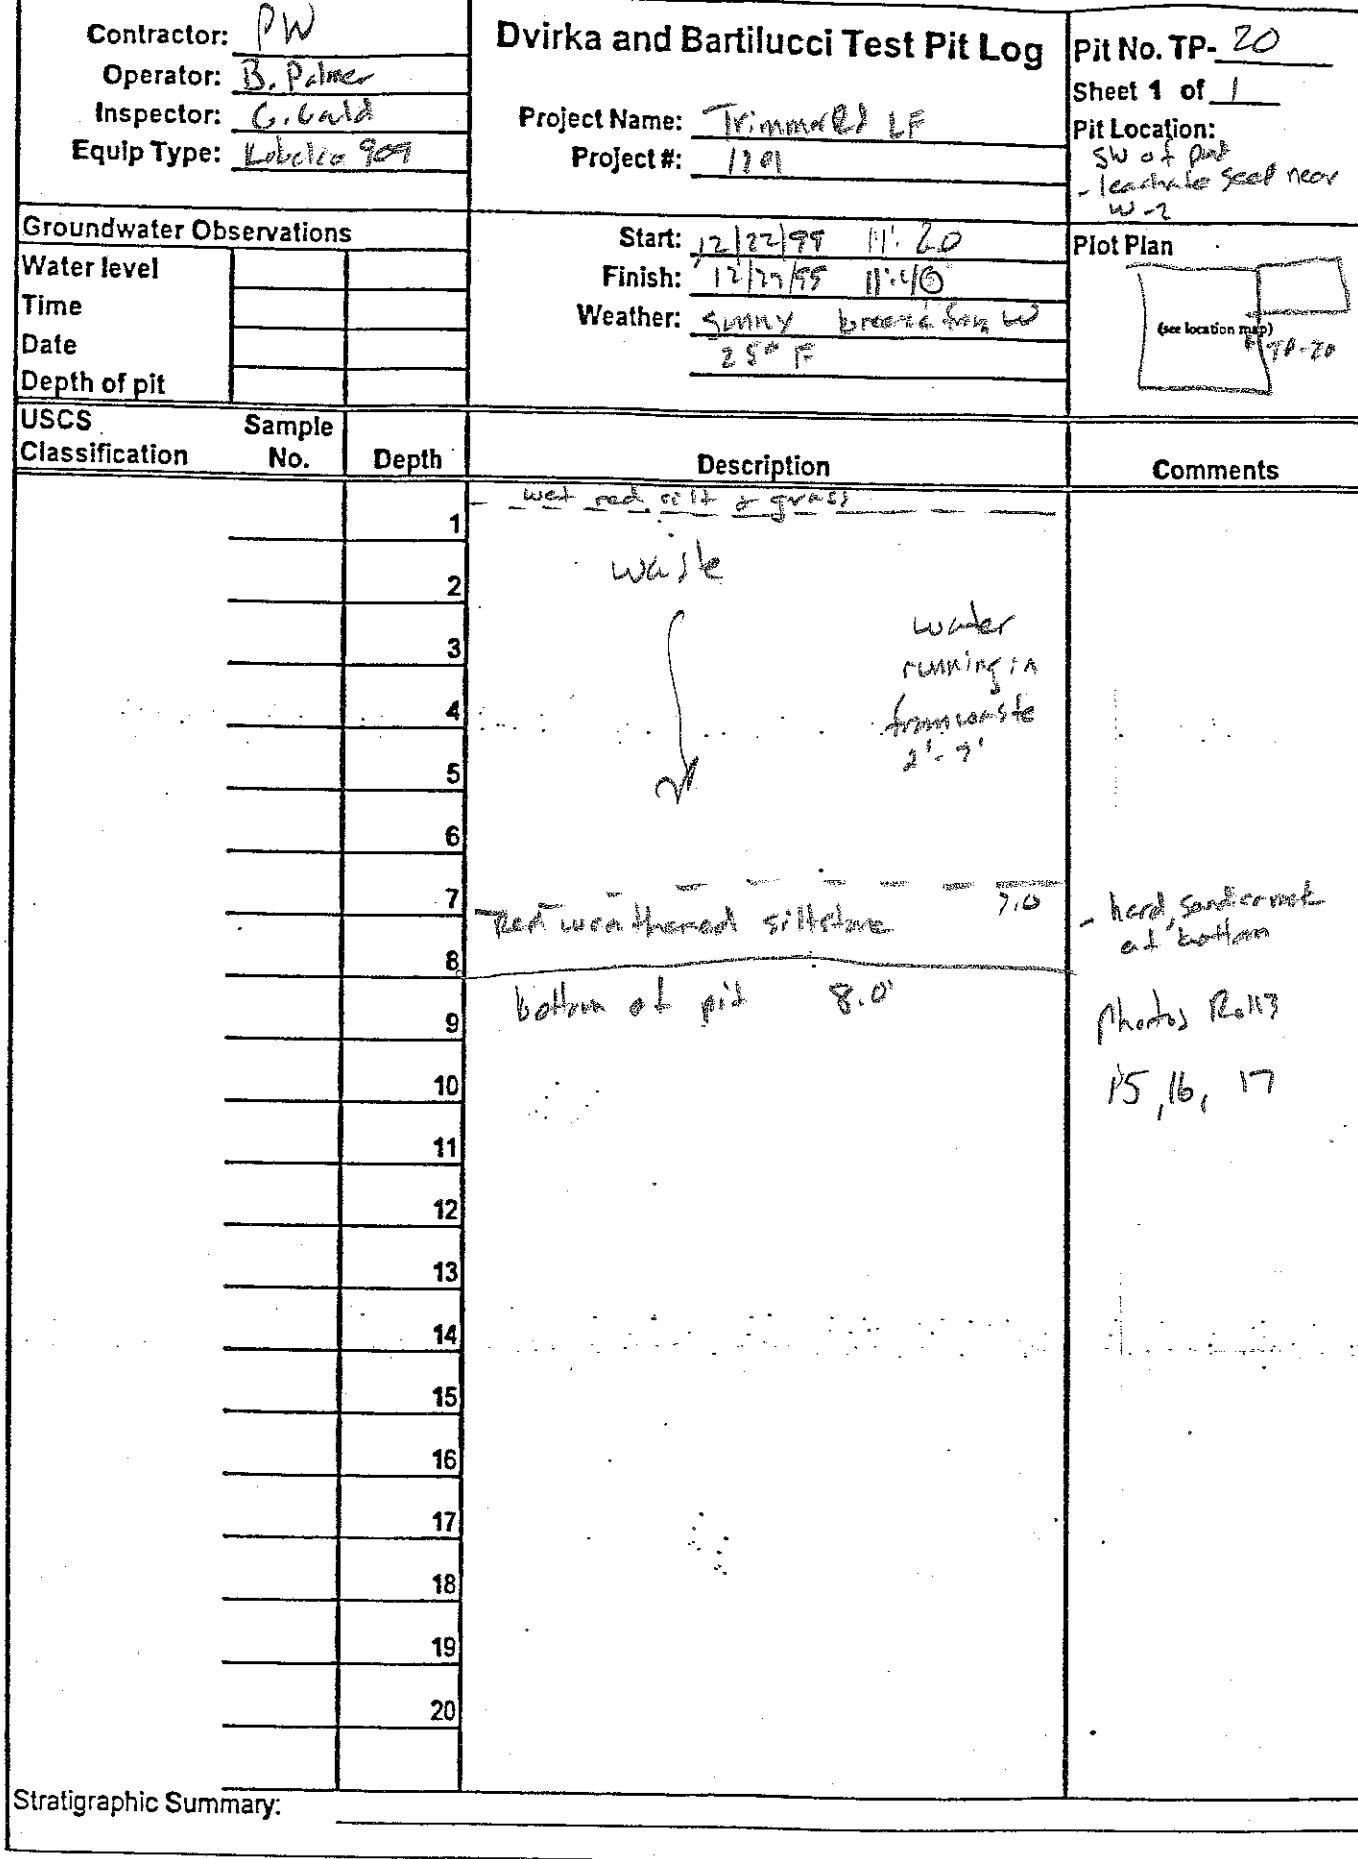 Contractor: PW
Operator: B. Palmer
Inspector: G. Gald
Equip Type: Kobelco 909
Dvirka and Bartilucci Test Pit Log
Project Name: Trimmer Rd LF
Project #:
Pit No. TP- 20
Sheet 1 of 1
Pit Location:
SW of
- leachate seep near
W-2
Groundwater Observations
Water level
Time
Date
Depth of pit
Start: 12/22/99 11:20
Finish: 11:40
Weather: Sunny breeze from W
25° F
Plot Plan
(see location map)
TP-20
USCS
Classification
Sample
No.
Depth
Description
Comments
- wet red silt & grass
1
waste
2
water
3
running in
4
from waste
5
6
7 7.0
Red weathered siltstone
- hard,
at bottom
8
bottom of pit 8.0'
9
Photos Roll 3
10
15, 16, 17
11
12
13
14
15
16
17
18
19
20
Stratigraphic Summary: